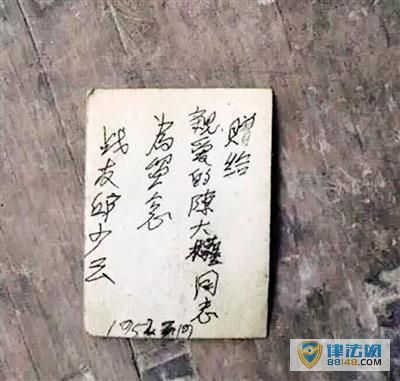 赠给
親爱的陈大同志
為留念
战友邱少云
1952
律法网
88148.com